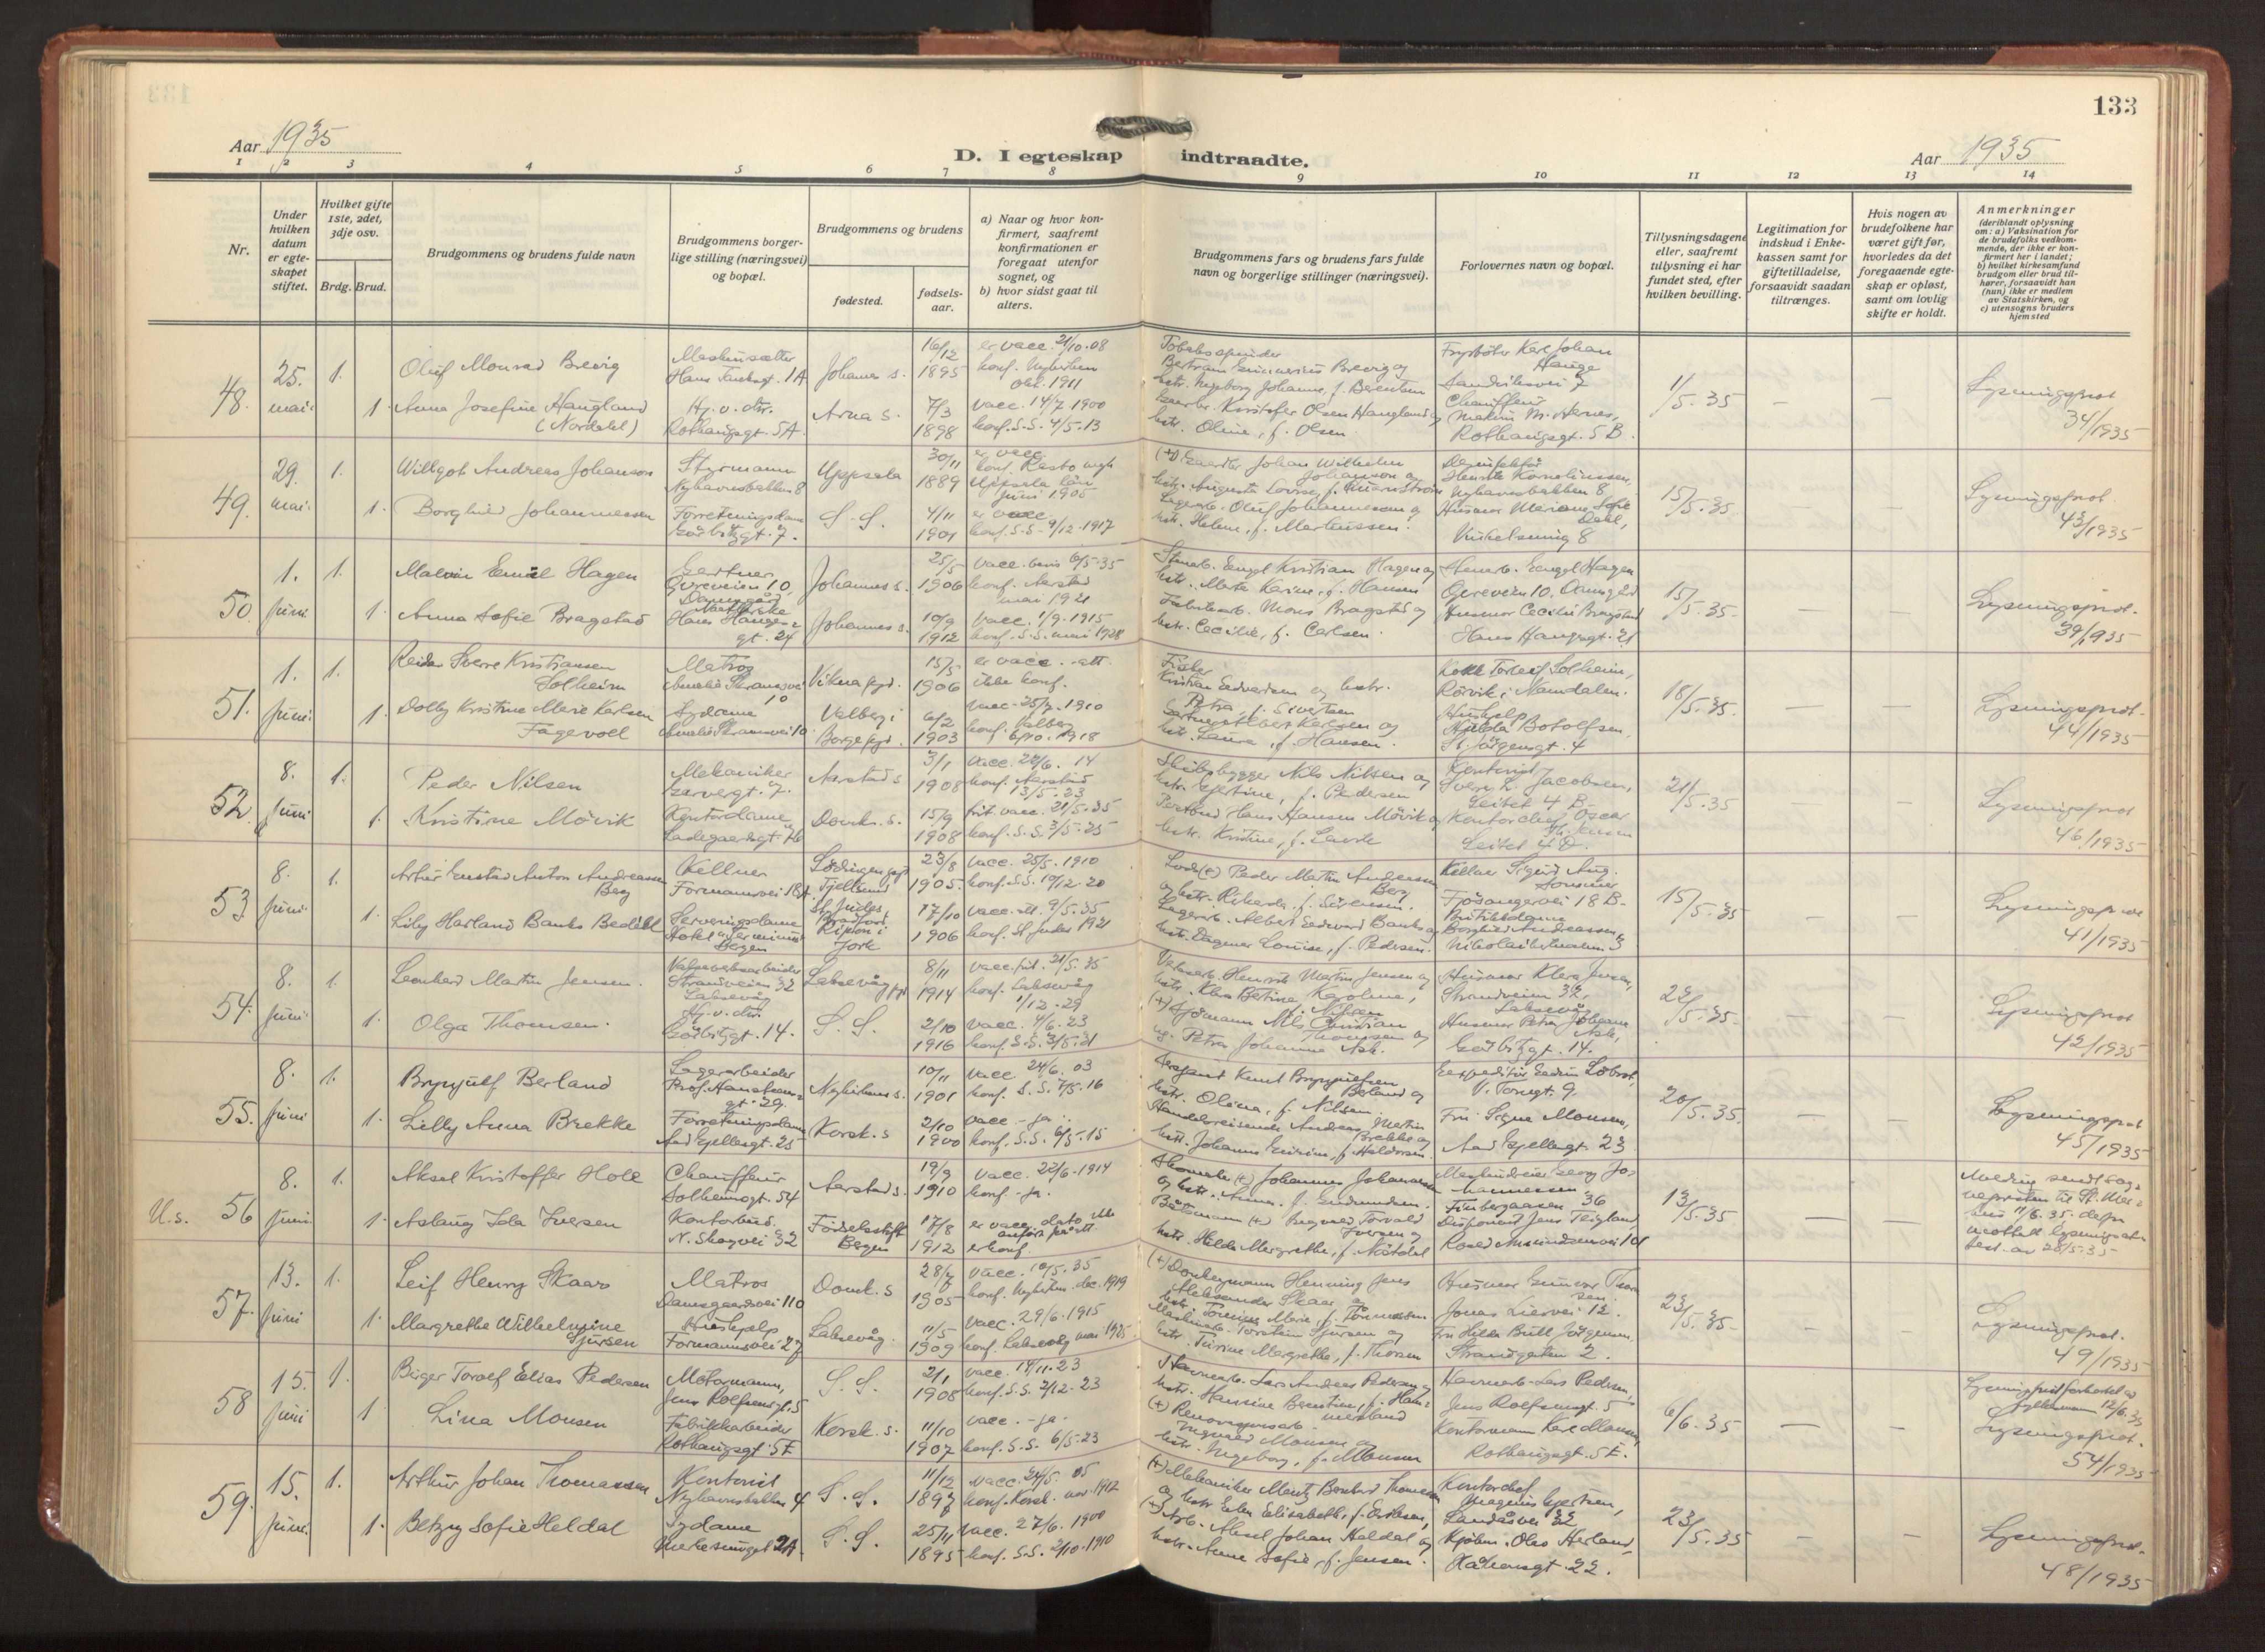 133
Aar 1935
D. I egteskap indtraadte.
Aar 1935
1 2 3 4 5 6 7 8 9 10 11 12 13 14
Nr.
Under hvilken datum er egteskapet stiftet.
Hvilket gifte 1ste, 2det, 3dje osv.
Brdg. Brud.
Brudgommens og brudens fulde navn
Brudgommens borgerlige stilling (næringsvei) og bopæl.
Brudgommens og brudens
fødested.
fødselsaar.
a) Naar og hvor konfirmert, saafremt konfirmationen er foregaat utenfor sognet, og
b) hvor sidst gaat til alters.
Brudgommens fars og brudens fars fulde navn og borgerlige stillinger (næringsvei).
Forlovernes navn og bopæl.
Tillysningsdagene eller, saafremt tillysning ei har fundet sted, efter hvilken bevilling.
Legitimation for indskud i Enkekassen samt for giftetilladelse, forsaavidt saadan tiltrænges.
Hvis nogen av brudefolkene har været gift før, hvorledes da det foregaaende egteskap er opløst, samt om lovlig skifte er holdt.
Anmerkninger (deriblandt oplysning om: a) Vaksination for de brudefolks vedkommende, der ikke er konfirmert her i landet; b) hvilket kirkesamfund brudgom eller brud tilhører, forsaavidt han (hun) ikke er medlem av Statskirken, og c) utensogns bruders hjemsted
48. 25. mai. 1.
Oluf Monrad Brevig
Hans Tanksgt. 1A
Johannes s.
16/12 1895
er vacc. 21/10.08
konf. Nykirken
okt. 1911
1.
Anna Josefine Haugland
(Nordahl)
Hj. v. dtr.
Rothaugsgt. 5A
Arna s.
7/3 1898
vacc. 14/7 1900
konf. S.S. 4/5.13
hstr. Ingeborg Johanne, f. Berentsen
Kristofer Olsen Haugland og
hstr. Oline, f. Olsen
Karl Johan Hauge
Sandviksvei 7
Chauffeur
Rothaugsgt. 5 B.
1/5.35
Lysningsprot
34/1935
49. 29. mai. 1.
Willgot Andreas Johanson
Styrmann
Nyhavnsbakken 8
Uppsala
30/11 1889
er vacc.
Uppsala län
juni 1905
1.
Borghild Johannessen
Forretningsdame
S. S.
4/11 1901
er vacc.
konf. S.S. 9/12.1917
Johan Wilhelm
Johanson og
Lagerarb. Oluf Johannessen og
hstr. Helene, f. Markussen.
Nyhavnsbakken 8
15/5.35
Lysningsprot
43/1935
50. 1. juni 1.
Malvin Emil Hagen
Gartner
Gyreveien 10,
Damsgård
Johannes s.
25/5 1906
vacc. bevis 6/5-35
konf. Aarstad
mai 1921
1.
Anna Sofie Bragstad
Hans Hauges-
gt. 24
Johannes s.
10/9 1912
vacc. 1/9.1915
konf. S.S. mai 1928
Engel Kristian Hagen og
hstr. Marta Karine, f. Hansen
Mons Bragstad og
hstr. Cecilie, f. Carlsen.
Engel Hagen
Gyreveien 10, Damsgård
Husmor Cecilie Bragstad
Hans Haugesgt. 21
15/5.35
Lysningsprot.
39/1935
51. 1. juni. 1.
Reidar Sverre Kristiansen
Solheim
Matros
Amalie Skramsvei
10
Vikna pgd.
1906
er vacc. att.
ikke konf.
1.
Dolly Kristine Marie Karlsen
Fagervoll
Sydame
Amalie Skramsvei 10.
Valberg i
Borge pgd.
6/2 1903
vacc. 25/7.1910
konf. Valberg
1918
Fisker
Kristian Edvardsen og hstr.
Petra, f. Sivertsen
Albert Karlsen og
hstr. Laura, f. Hansen.
Torleif Solheim,
Rörvik i Namdalen.
Hushjelp
Hulda Botolfsen,
St. Jörgensgt. 4
18/5.35.
Lysningsprot.
44/1935
52. 8. juni 1.
Peder Nilsen
Mekaniker
Garvergt. 7.
Aarstad s.
3/1 1908
vacc. 22/6.14
konf. Aarstad
13/5.23
1.
Kristine Mövik
Kontordame
Ladegaardsgt. 76
Domk. s.
15/9 1908
frit. vacc. 21/5.35
konf. S.S. 3/5.25
Skibsbygger Nils Nilsen og
hstr. Gjertine, f. Pedersen
Postbud Hans Hansen Mövik og
hstr. Kristine, f.
Kontorist
Sverre L. Jacobsen,
Leitet 4 B.
Kontorchef Oscar
Leitet 4 D.
21/5.35
Lysningsprot
46/1935
53. 8. juni 1.
Artur Gustav Anton Andreassen
Berg
Kellner
Formannsvei 18A
Lödingen pgd
Tjeldsund
23/3 1905.
vacc. 25/5.1910
konf. S.S. 10/12.20
1.
Lily Harland Banks Bedell
Serveringsdame
Hotel Terminus
Bergen
St. Judes
Bradford
Ripon i
York
17/10 1906
vacc. att. 9/5.35
konf. St. Judes 1921
Lods (+) Peder Martin Andreassen
Berg
og hstr. Rikarda, f. Sörensen.
Lagerarb. Albert Edward Banks og
hstr. Dagmar Louise, f. Pedersen.
Kellner Sigurd Aug.
Fjösangervei 18 B.
Butikkdame
Borghild Andreassen,
15/5.35
Lysningsprot
41/1935
54. 8. juni 1.
Leonhard Martin Jensen.
Strandveien 32
Laksevåg
Laksevåg pgd
8/11 1914
vacc. frit. 21/5.35
konf. Laksevåg
1/12.29
1.
Olga Thomsen.
Hj. v. dtr.
14.
S. S.
2/10 1916
vacc. 4/6.23
konf. S.S. 3/5.31
Henrik Martin Jensen og
hstr. Klara Betine Karoline,
f. Nilsen
(+) Sjömann Nils Christian
Thomsen og
ug. Petra Johanne Ask.
Husmor Klara Jensen,
Strandveien 32,
Laksevåg
Husmor Petra Johanne
Ask,
14.
22/5.35.
Lysningsprot
42/1935
55. 8. juni 1.
Brynjulf Berland
Lagerarbeider
Prof. Hansteens-
gt. 29.
Nykirkens s.
10/11 1901
vacc 24/6.03
konf. S.S. 7/5.16
1.
Lilly Anna Brekke
Forretningsdame
Aad Gjellesgt. 25
Korsk. s
2/10 1900
vacc - ja.
konf. S.S. 6/5.15
Sergeant Knut Brynjulfsen
Berland og
hstr. Olina, f. Nilsen
Handelsreisende Andreas Martin
Brekke og
hstr. Johanna f. Haldorsen.
V. Torvgt. 9.
Frú Signe Monsen,
Aad Gjellesgt. 23
20/5.35.
Lysningsprot
45/1935
U.s. 56 8. juni 1.
Aksel Kristoffer Holl
Chauffeur
Solheimsgt. 54
Aarstad s.
19/9 1910
vacc. 22/6.1914
konf. - ja.
1.
Aslaug Ida Iversen
Kontorbud.
N. Skogvei 32
Födselsstift.
Bergen
17/8 1912
er vacc, dato ikke
anfört på att.
er konf.
(+) Johannes Johannessen
og hstr. Anna, f. Gudmundsen.
Båtsmann (+) Ingvald Torvald
Iversen og
hstr. Hilda Margrethe, f. Nötdal
Georg Jo-
hannessen.
Finbergaasen 36
Disponent Jens Teigland
Roald Amundsensvei 14
13/5.35
Melding sendt sog-
nepresten til St. Mar-
kus 11/6.35. derfra
mottatt lysningsat-
test av 28/5.35
57. 13. juni 1.
Leif Henry Skaar
Matros
Damsgaardsvei 110
Domk. s
28/7 1905
vacc. 10/5.35
konf. Nykirken dec. 1919
1.
Margrethe Wilhelmine
Sjursen
Hushjelp
Formannsvei 27
Laksevåg.
11/5 1909
vacc. 29/6.1915
konf. Laksevåg mai 1925
(+) Donkeymann Henning Jens
Aleksander Skaar og
Torsten Sjursen og
hstr. Turine Margrethe, f. Thorsen
Husmor Gunvor
Jonas Liesvei 12.
Fru Hilda Bull Jörgensen,
Strandgaten 2.
23/5.35.
Lysningsprot.
49/1935
58 15. juni 1.
Birger Torolf Elias Pedersen
Motormann,
Jens Rolfsensgt. 5
S. S.
2/1 1908
vacc. 14/11.23
konf. S.S. 2/12.23
1
Lina Monsen
Fabrikkarbeider
Rothaugsgt. 5E
Korsk. s.
11/10 1907
vacc. - ja.
konf. S.S. 6/5.23
Havnearb. Lars Andreas Pedersen og
hstr. Hansine Berntine, f. Ham-
mersland
(+) Renovasjonsarb.
Ingvald Monsen og
hstr. Ingeborg, f. Monsen
Havnearb. Lars Pedersen,
Jens Rolfsensgt. 5
Kontormann Karl Monsen,
Rothaugsgt. 5E.
6/6.35
12/6.35
Lysningsprot.
54/1935
59. 15. juni. 1.
Arthur Johan Thomassen
Kontorist
Nyhavnsbakken 4
S. S.
11/12 1897
vacc. 24/5.05
konf. Korsk. nov. 1912
1.
Betzy Sofie Heldal
Sydame
2A.
S. S.
25/11 1895
vacc. 27/6.1900
konf. S.S. 2/10.1910
(+) Mekaniker Mentz Bernhard Thomassen
og hstr. Elen Elisabeth, f. Eriksen,
(+) Arb. Aksel Johan Heldal og
hstr. Anne Sofie, f. Jensen.
Kontorchef
Magnus Gjertsen,
Landåsvei 32
Kjöbm. Olas Herland,
22.
23/5.35
Lysningsprot.
48/1935